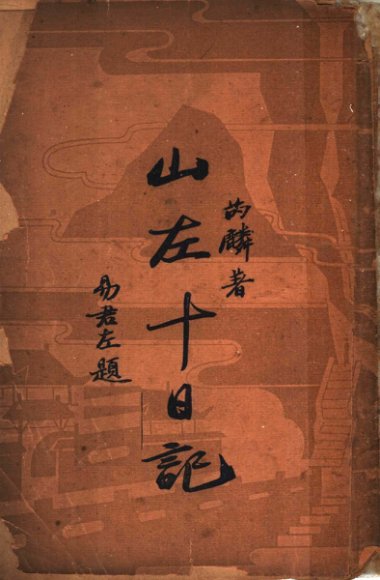 芮麟著
山左十日記
易君左題